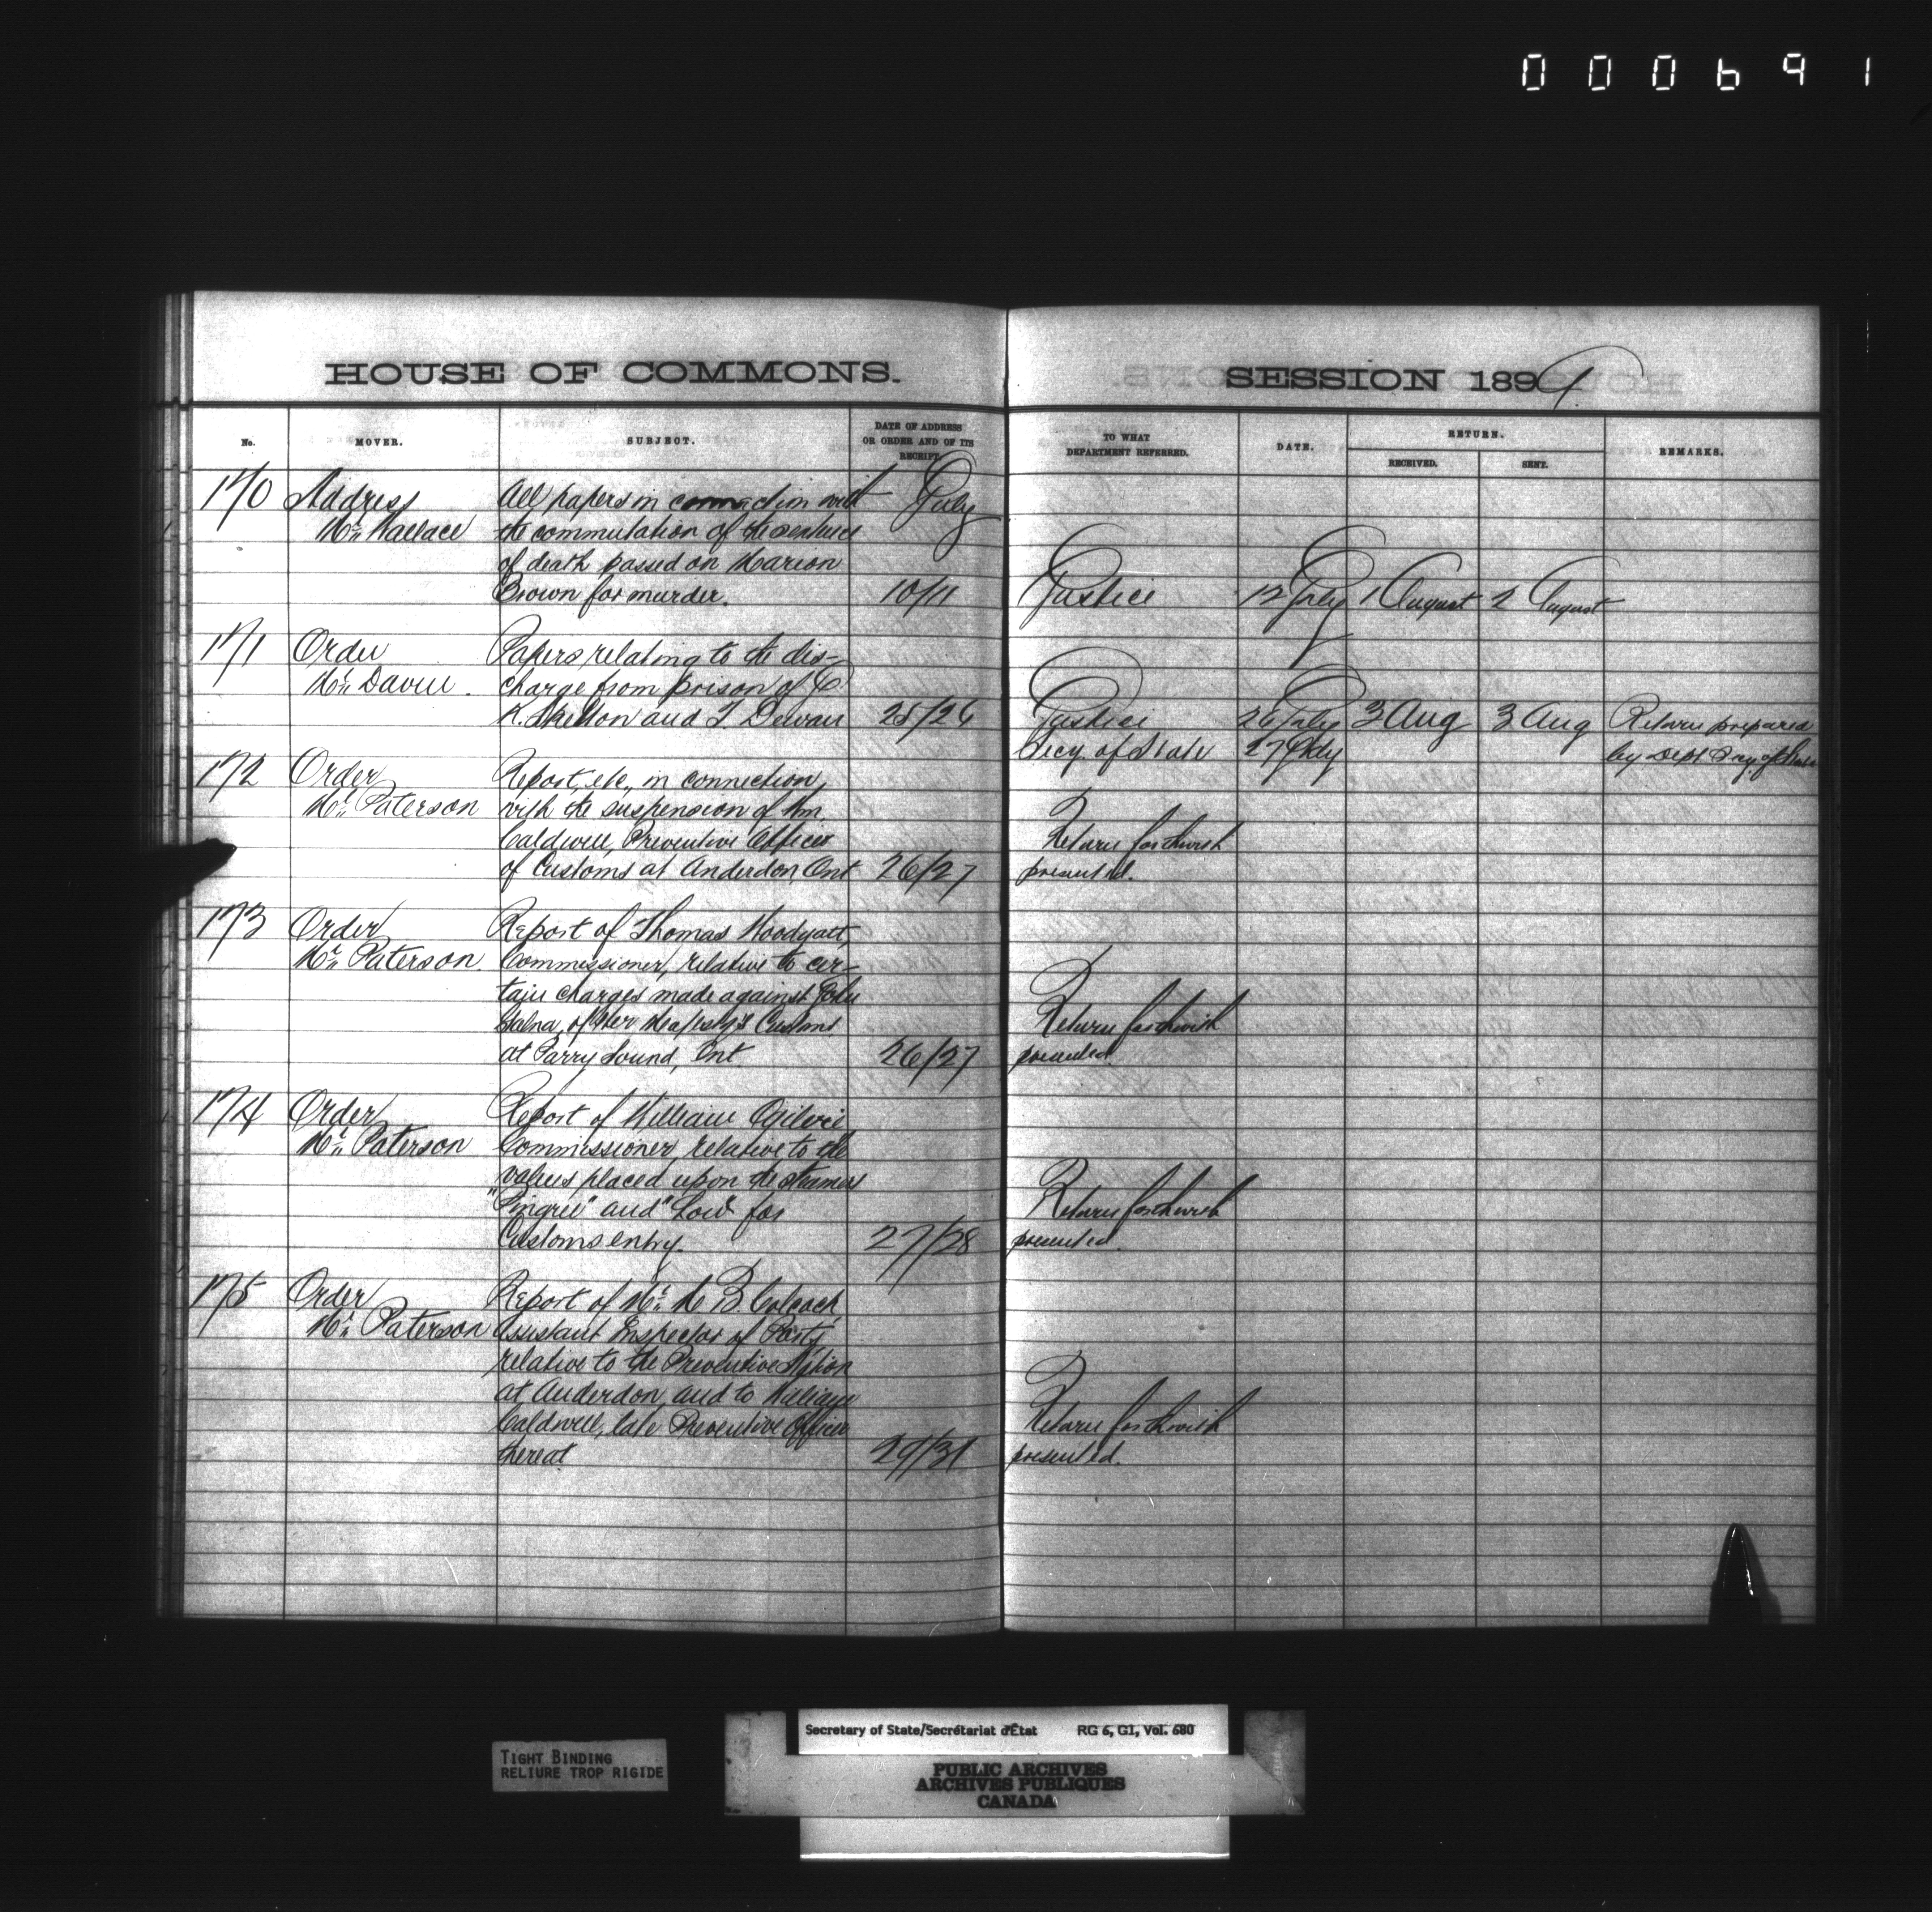 000691
HOUSE OF COMMONS.
SESSION 1899
No.
MOVER.
SUBJECT.
DATE OF ADDRESS
OR ORDER AND OF ITS
RECEIPT.
TO WHAT
DEPARTMENT REFERRED.
DATE.
RETURN.
RECEIVED.
SENT.
REMARKS.
170 Address All papers in connection with July
Mr. Wallace the commutation of the sentence
of death passed on Marion
Brown for murder. 10/11 Justice 12 July 1 August 2 August
171 Order Papers relating to the dis-
Mr. Davin. charge from prison of C.
K. Skelton and T. Dewan 25/26 Justice 26 July 3 Aug 3 Aug Return prepared
Secy. of State 27 July by Dept Secy. of State
172 Order Report, etc., in connection
Mr. Paterson with the suspension of Wm.
Caldwell, Preventive Officer Return forthwith
of Customs at Anderdon, Ont 26/27 presented.
173 Order Report of Thomas Woodyatt,
Mr. Paterson. Commissioner, relative to cer-
tain charges made against John
of Her Majesty's Customs Return forthwith
at Parry Sound, Ont. 26/27 presented.
174 Order Report of William Ogilvie
Mr. Paterson Commissioner, relative to the
values placed upon the steamers
"Pingree" and "Low" for Return forthwith
Customs entry. 27/28 presented.
175 Order Report of Mr.
Mr. Paterson Assistant Inspector of Ports,
relative to the Preventive Station
at Anderdon, and to William
Caldwell, late Preventive Officer Return forthwith
thereat. 29/31 presented.
TIGHT BINDING
RELIURE TROP RIGIDE
Secretary of State/Secrétariat d'État RG 6, G1, Vol. 680
PUBLIC ARCHIVES
ARCHIVES PUBLIQUES
CANADA